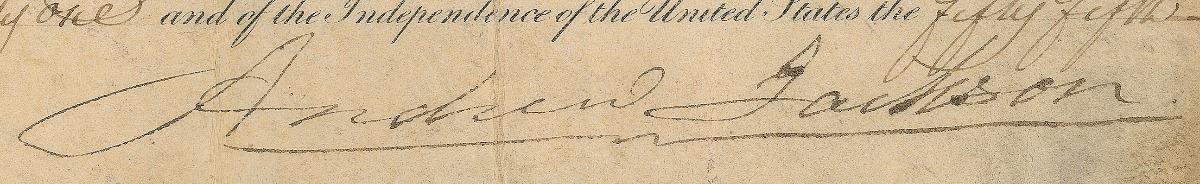 y one and of the Independence of the United States the fifty fifth
Andrew Jackson